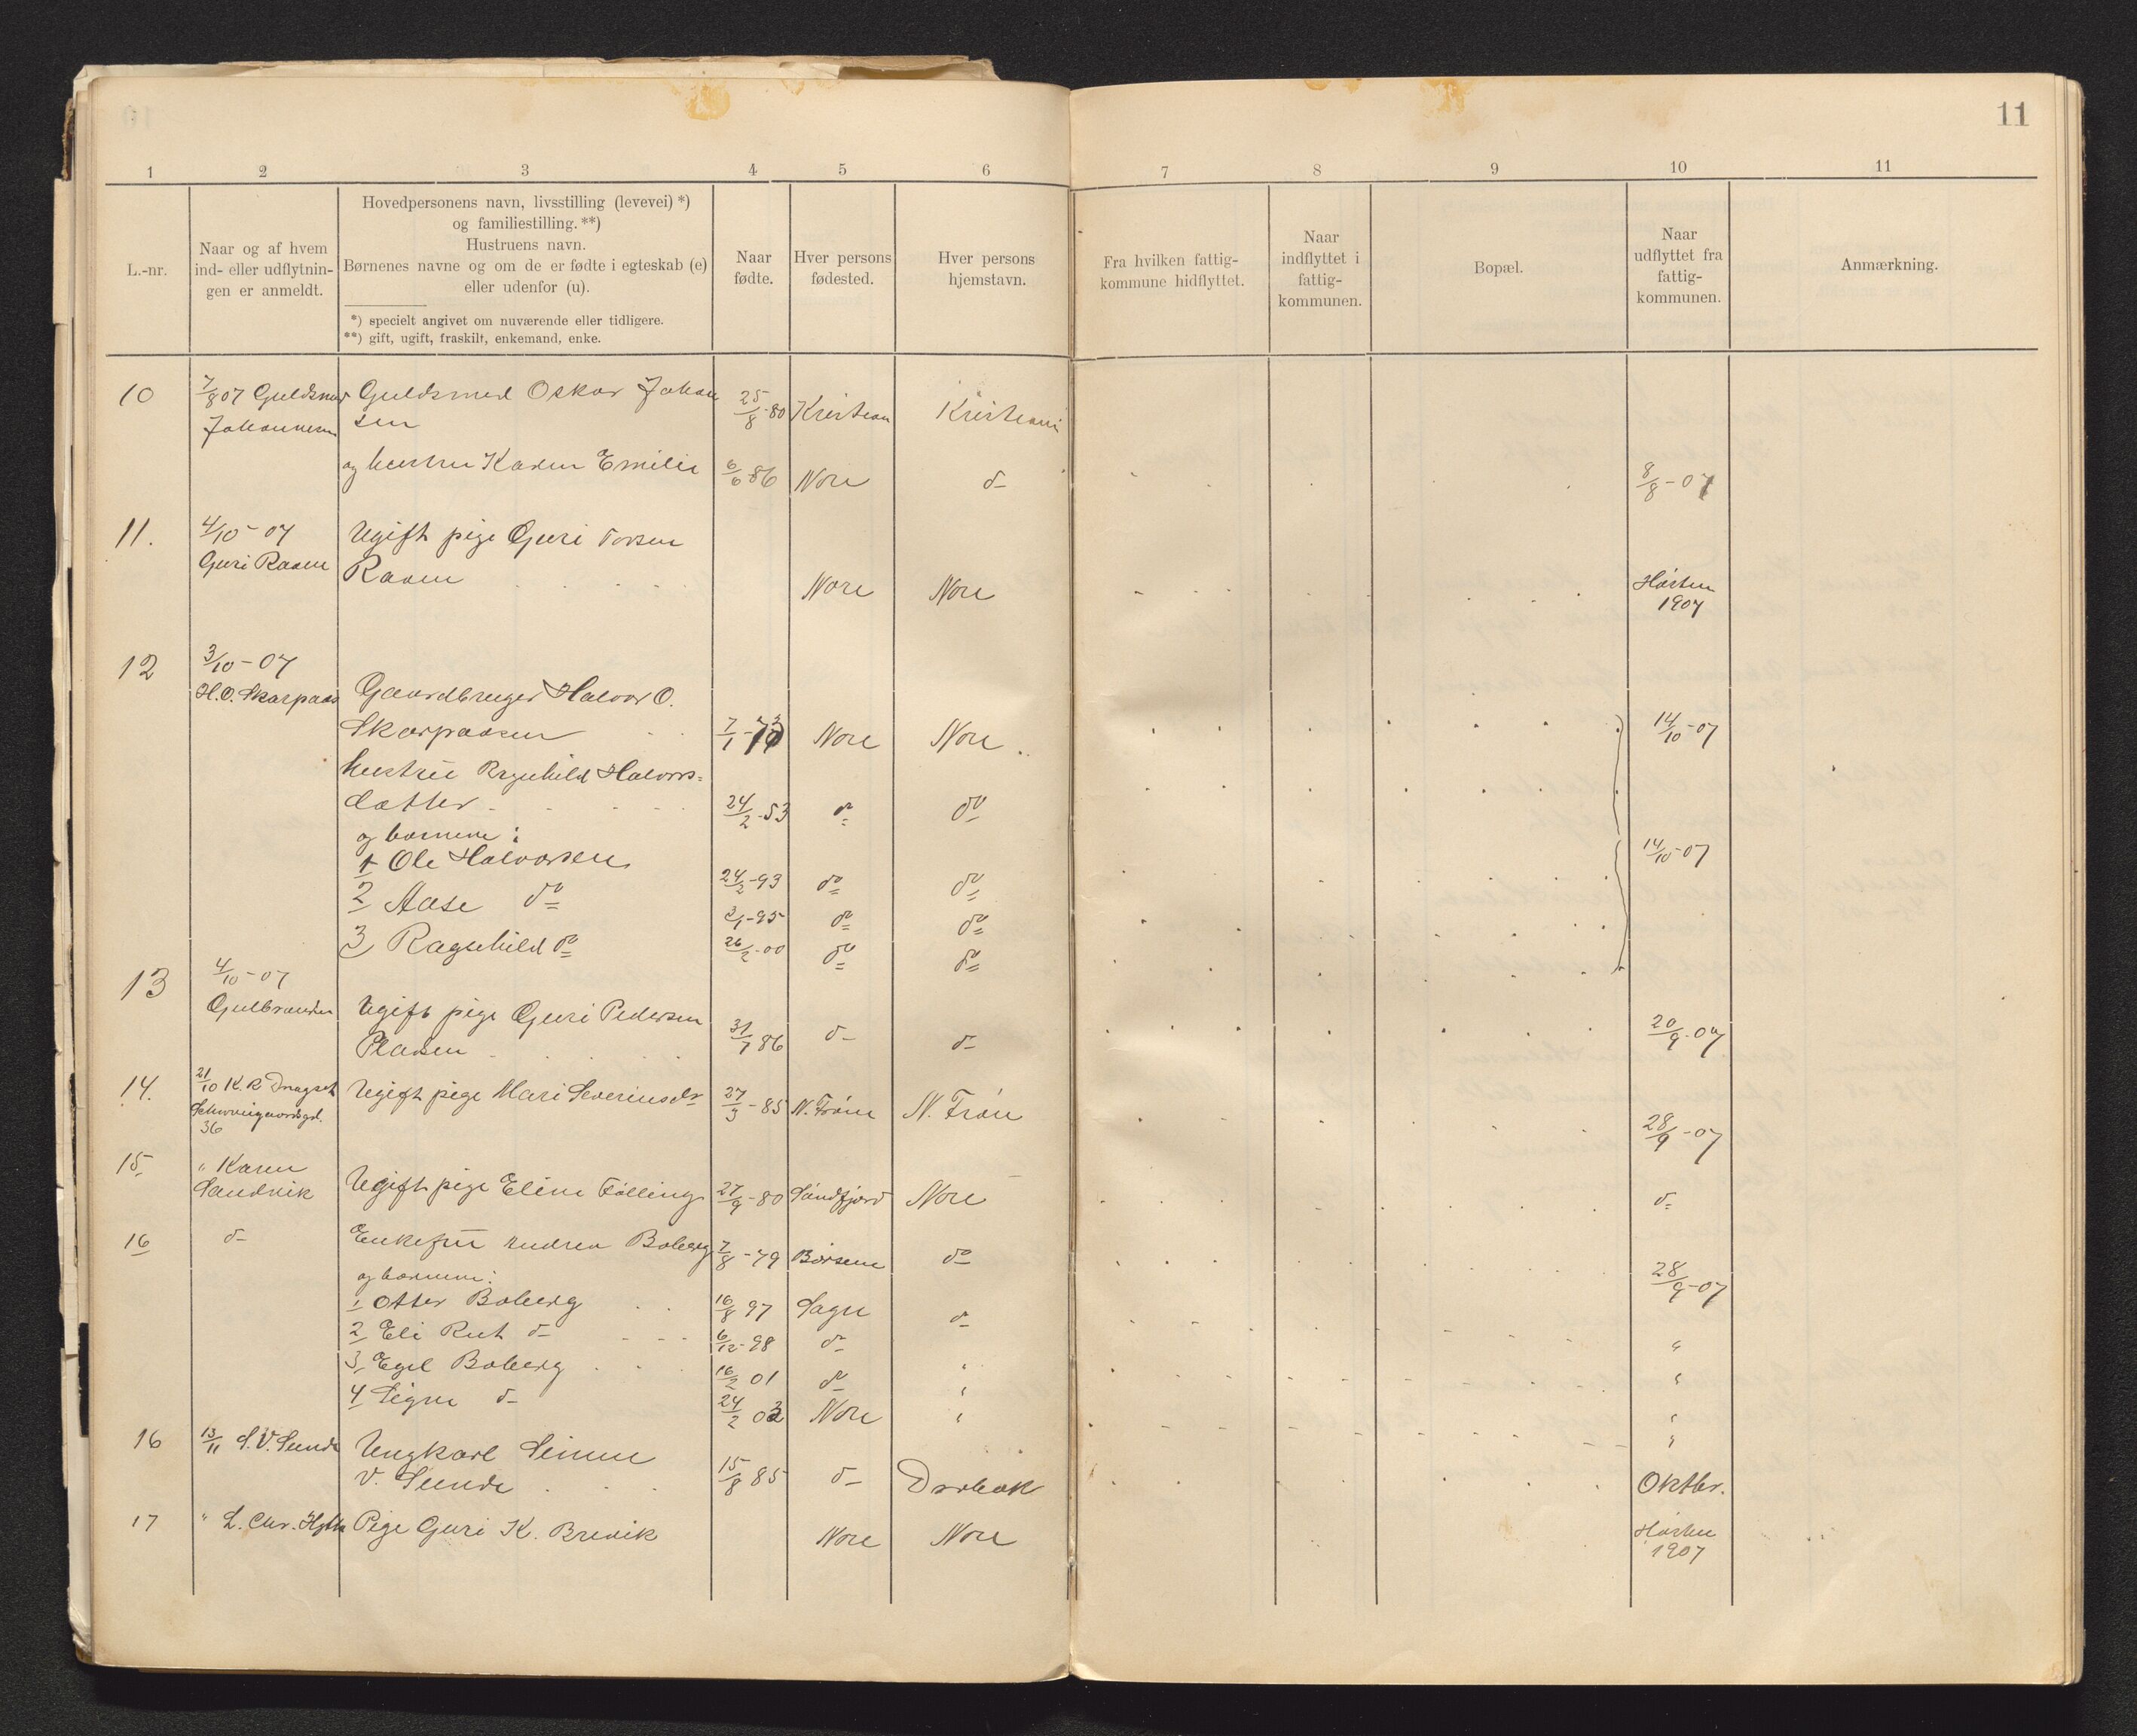 11
1 2 3 4 5 6 7 8 9 10 11
L.-nr.
Naar og af hvem
ind- eller udflytnin-
gen er anmeldt.
Hovedpersonens navn, livsstilling (levevei) *)
og familiestilling. **)
Hustruens navn.
Børnenes navne og om de er fødte i egteskab (e)
eller udenfor (u).
*) specielt angivet om nuværende eller tidligere.
**) gift, ugift, fraskilt, enkemand, enke.
Naar
fødte.
Hver persons
fødested.
Hver persons
hjemstavn.
Fra hvilken fattig-
kommune hidflyttet.
Naar
indflyttet i
fattig-
kommunen.
Bopæl.
Naar
udflyttet fra
fattig-
kommunen.
Anmærkning.
10 7/8 07 Guldsmed Guldsmed Oskar Johan 25/8-80 Kristian Kristiani
Johannesen sen
og hustru Karen Emilie 6/6 86 Nore d- 8/8-07
11. 4/10-07 Ugift pige Guri Torsen
Guri Raaen Raaen Nore Nore Høsten
1907
12 3/10-07
H.O. Skarpaas Gaardbruger Halvor O.
Skarpaasen 7/1-73 Nore Nore 14/10-07
hustru Ragnhild Halvors=
datter 24/2-53 do do
og børnene:
1 Ole Halvorsen 24/2-93 do do 14/10-07
2 Aase do 3/1-95 do do
3 Ragnhild do 26/2-00 do do
13 4/10-07
Gulbrandsen Ugift pige Guri Pedersen
Pladsen 31/7 86 d- d- 20/9-07
14. 21/10 K. R Dragset Ugift pige Mari Severinsdr 27/3-85 N. Frøn N. Frøn 28/9-07
Schweigaardsgd.
36
15 " Karen
Sandvik Ugift pige Eline Følling 27/9-80 Sandfjord Nore d-
16 d- Enkefru Andrea Boberg 7/8-79 Børsen do 28/9-07
og børnene:
1 Otter Boberg 16/8 97 Sagn d-
2 Eli Rut d- 6/12-98 do "
3 Egil Boberg 16/2 01 do " "
4 Signe d- 24/2 03 Nore " "
16 13/11 S.V. Sunde Ungkarl Simen
V. Sunde 15/8 85 d- Drøbak Oktbr.
17 " L. Chr. Pige Guri K. Brevik Nore Nore Høsten
1907